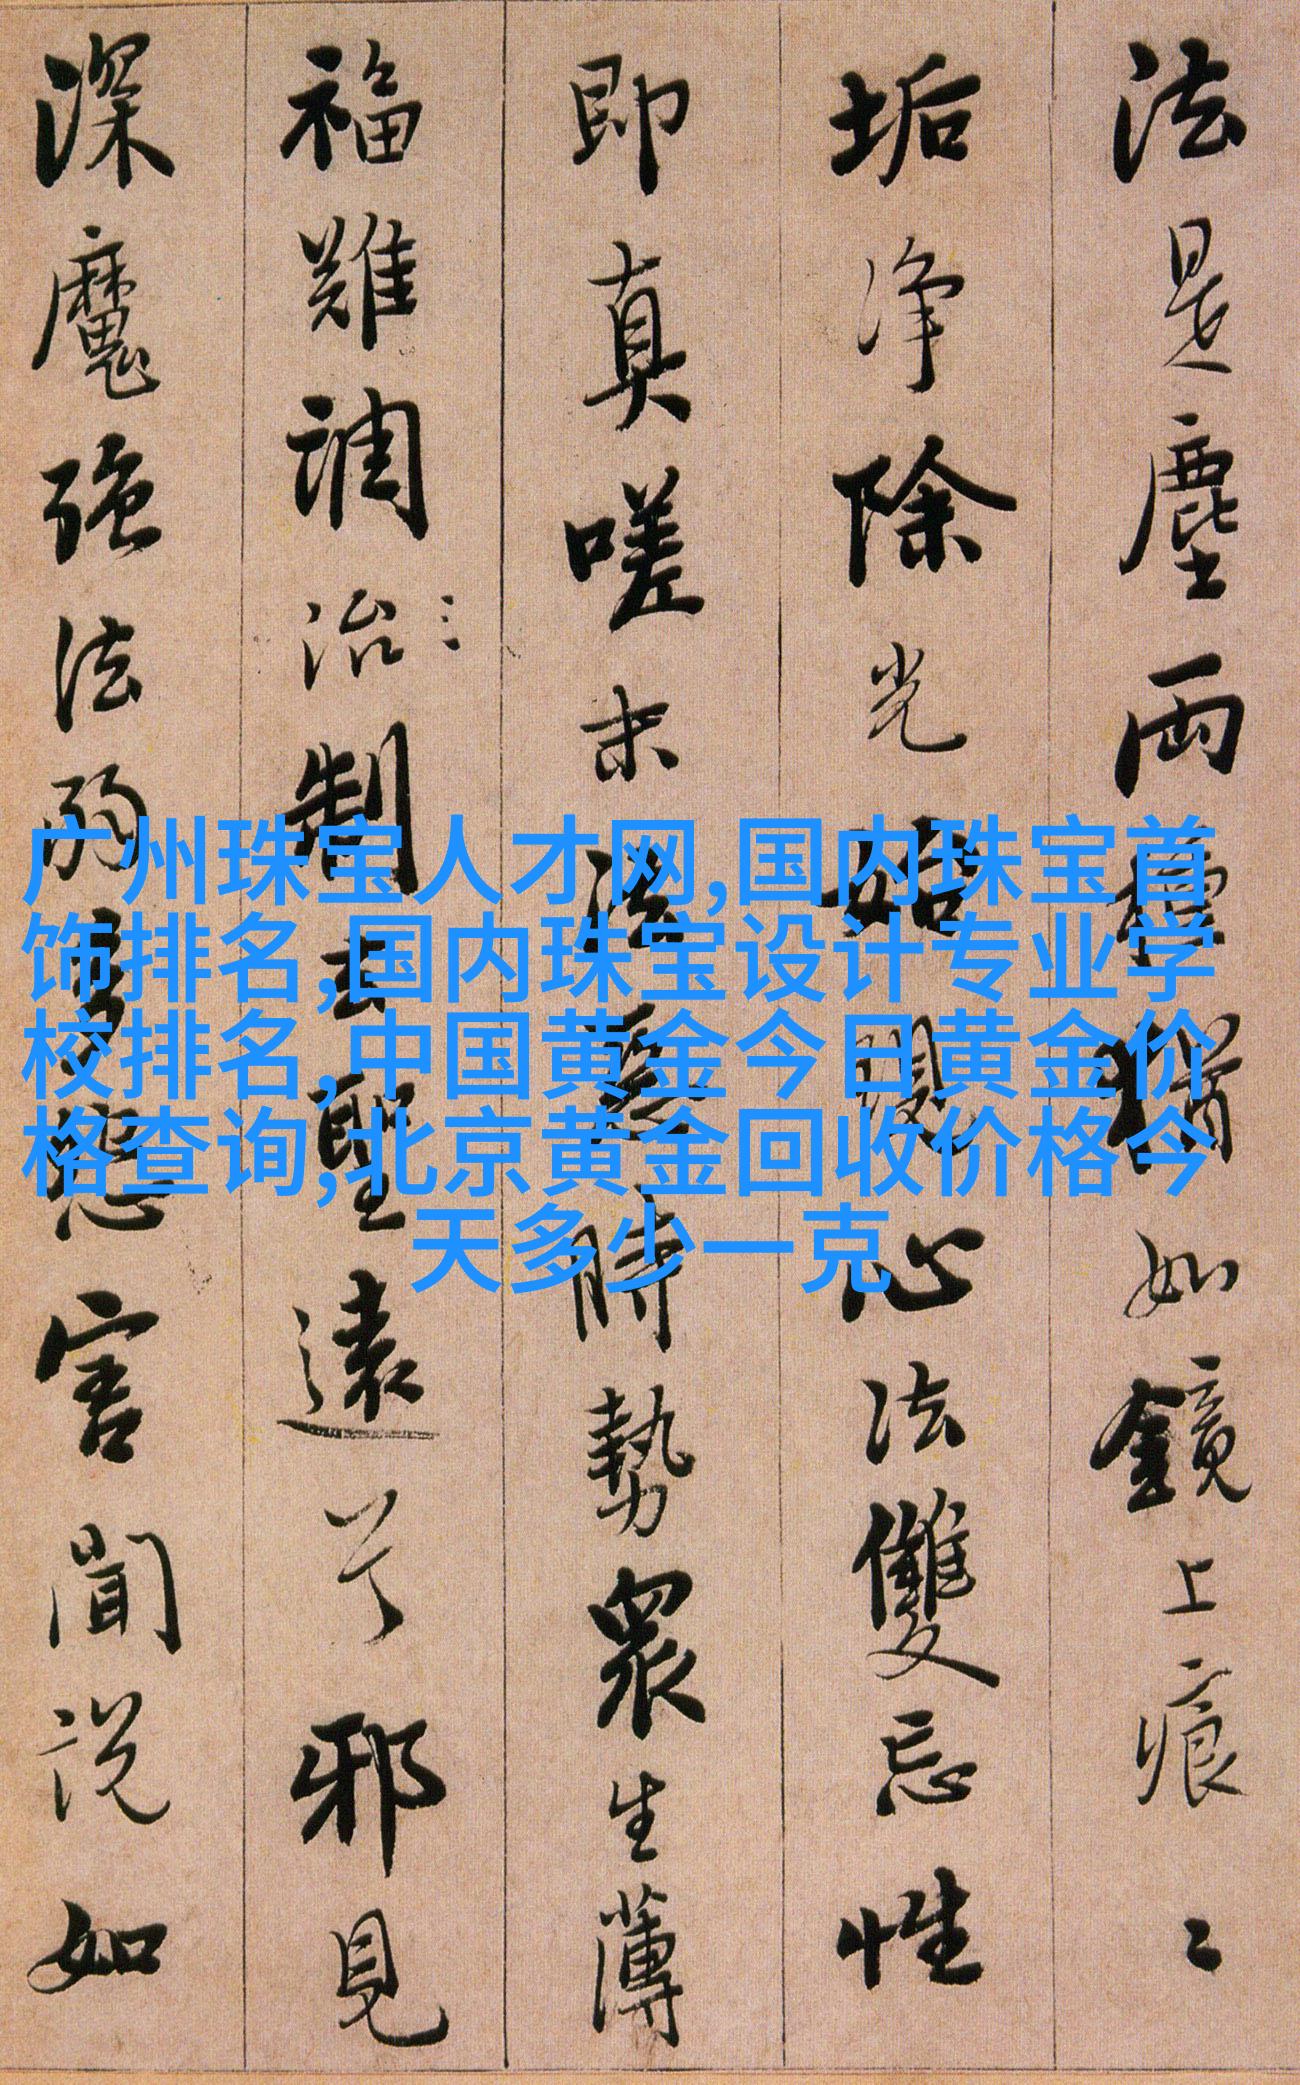 法是塵兩種猶如鏡上痕〻
垢净除光始現心法雙忘性
即真嗟末法惡時勢衆生薄
福難調治制去聖遠兮邪見
深魔强法弱多怨害聞説如
广州珠宝人才网,国内珠宝首
饰排名,国内珠宝设计专业学
校排名,中国黄金今日黄金价
格查询,北京黄金回收价格今
天多少一克